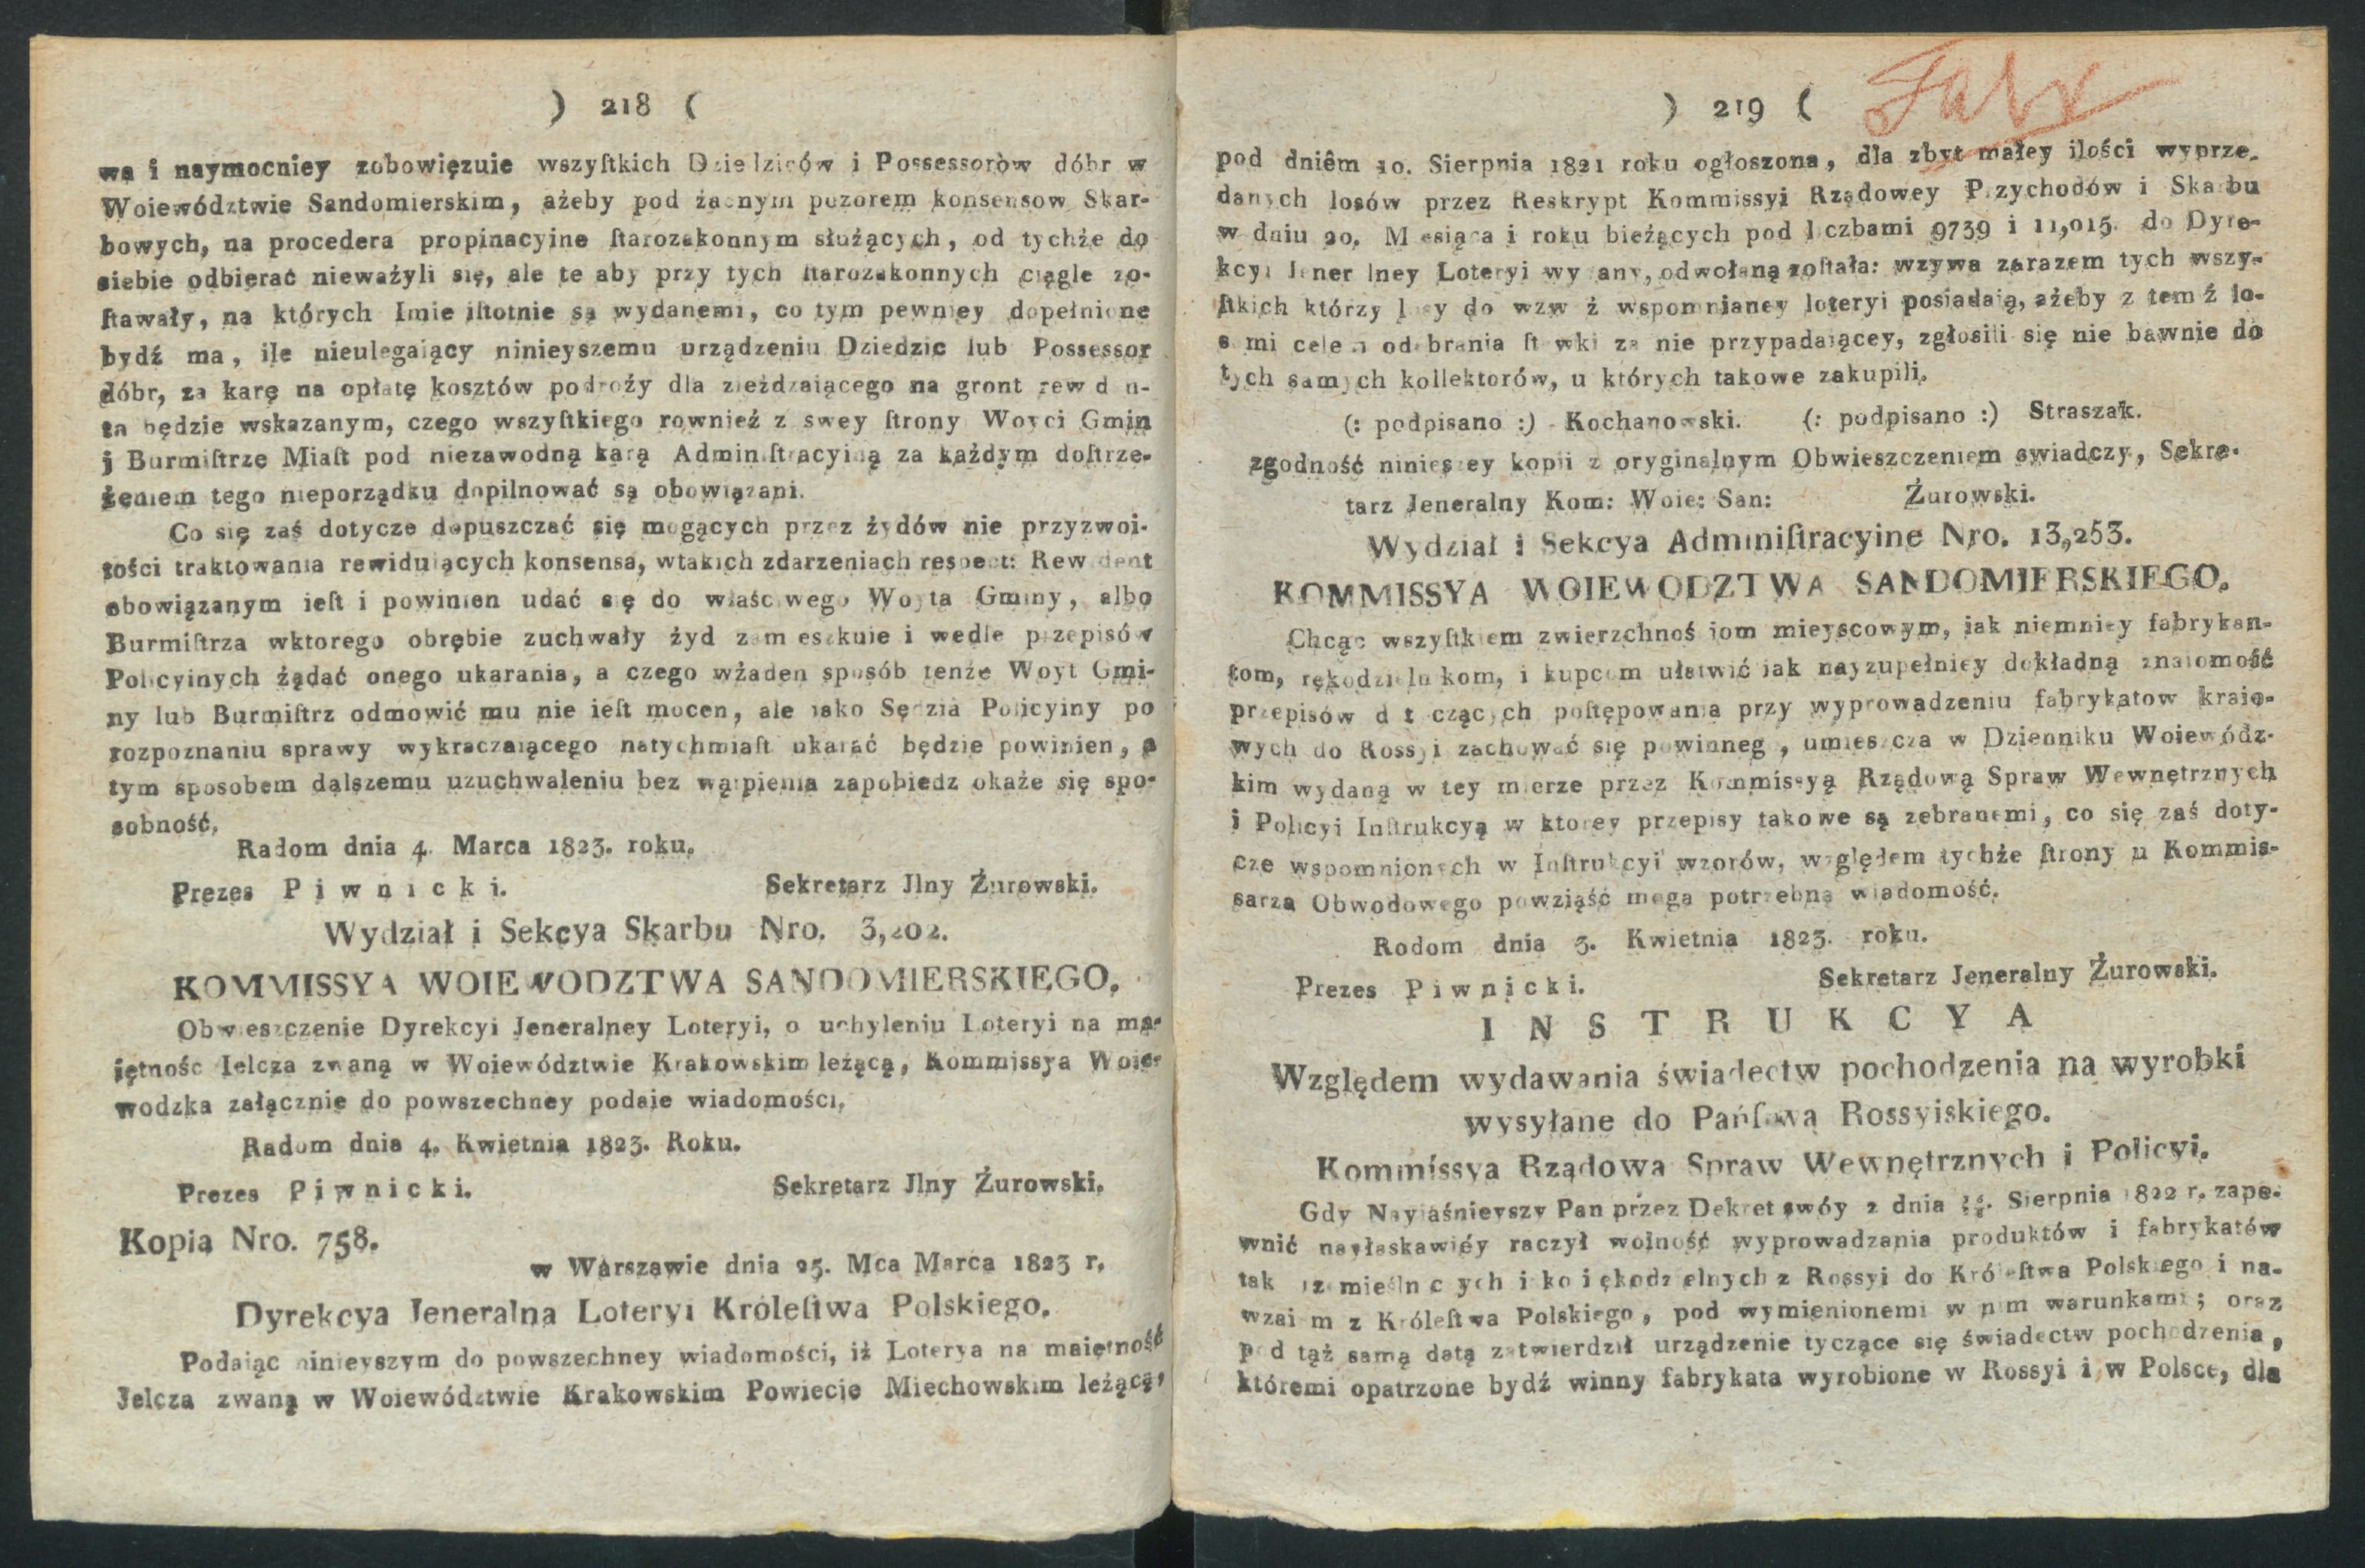 ) 218 (
wa i naymocniey zobowięzuie wszyſtkich Dziedziców i Possessorów dóbr w
Woiewództwie Sandomierskim, ażeby pod żadnym pozorem konsensow Skar-
bowych, na procedera propinacyine ſtarozakonnym służących, od tychże do
siebie odbierać nieważyli się, ale te aby przy tych ſtarozakonnych ciągle zo-
ſtawały, na których Imie iſtotnie są wydanemi, co tym pewniey dopełnione
bydź ma, ile nieulegaiący ninieyszemu urządzeniu Dziedzic lub Possessor
dóbr, za karę na opłatę kosztów podroży dla zieżdzaiącego na gront rewiden-
ta będzie wskazanym, czego wszyſtkiego rownież z swey ſtrony Woyci Gmin
j Burmiſtrze Miaſt pod niezawodną karą Adminiſtracyiną za każdym doſtrze-
żeniem tego nieporządku dopilnować są obowiązani.
Co się zaś dotycze dopuszczać się mogących przez żydów nie przyzwoi-
tości traktowania rewiduiących konsensa, wtakich zdarzeniach respect: Rewident
obowiązanym ieſt i powinien udać się do właściwego Woyta Gminy, albo
Burmiſtrza wktorego obrębie zuchwały żyd zamieszkuie i wedle przepisów
Policyinych żądać onego ukarania, a czego wżaden sposób tenże Woyt Gmi-
ny lub Burmiſtrz odmowić mu nie ieſt mocen, ale iako Sędzia Policyiny po
rozpoznaniu sprawy wykraczaiącego natychmiaſt ukarać będzie powinien, a
tym sposobem dalszemu uzuchwaleniu bez wątpienia zapobiedz okaże się spo-
sobność.
Radom dnia 4. Marca 1823. roku.
Prezes Piwnicki. Sekretarz Jlny Żurowski.
Wydział i Sekcya Skarbu Nro. 3,202.
KOMMISSYA WOIEWODZTWA SANDOMIERSKIEGO.
Obwieszczenie Dyrekcyi Jeneralney Loteryi, o uchyleniu Loteryi na ma-
iętnośc Ielcza zwaną w Woiewództwie Krakowskim leżącą, Kommissya Woie-
wodzka załącznie do powszechney podaie wiadomości.
Radom dnia 4. Kwietnia 1823. Roku.
Prezes Piwnicki. Sekretarz Jlny Żurowski.
Kopia Nro. 758.
w Warszawie dnia 25. Mca Marca 1823 r.
Dyrekcya Jeneralna Loteryi Króleſtwa Polskiego.
Podaiąc ninieyszym do powszechney wiadomości, iż Loterya na maiętność
Jelcza zwaną w Woiewództwie Krakowskim Powiecie Miechowskim leżącą,
) 219 (
pod dniêm 10. Sierpnia 1821 roku ogłoszona, dla zbyt małey ilości wyprze-
danych losów przez Reskrypt Kommissyi Rządowey Przychodów i Skarbu
w dniu 20. Miesiąca i roku bieżących pod liczbami 9739 i 11,015. do Dyre-
kcyi Jeneralney Loteryi wydany, odwołaną zoſtała: wzywa zarazem tych wszy-
ſtkich którzy losy do wzwyż wspomnianey loteryi posiadaią, ażeby z temiż lo-
sami celem odebrania ſtawki za nie przypadaiącey, zgłosili się nie bawnie do
tych samych kollektorów, u których takowe zakupili.
(: podpisano :) Kochanowski. (: podpisano :) Straszak.
zgodność ninieszey kopii z oryginalnym Obwieszczeniem swiadczy, Sekre-
tarz Jeneralny Kom: Woie: San: Żurowski.
Wydział i Sekcya Adminiſtracyine Nro. 13,253.
KOMMISSYA WOIEWODZTWA SANDOMIERSKIEGO.
Chcąc wszyſtkiem zwierzchnościom mieyscowym, iak niemniey fabrykan-
tom, rękodzielnikom, i kupcom ułatwić iak nayzupełniey dokładną znaiomość
przepisów dotyczących poſtępowania przy wyprowadzeniu fabrykatow kraio-
wych do Rossyi zachować się powinnego, umieszcza w Dzienniku Woiewódz-
kim wydaną w tey mierze przez Kommissyą Rządową Spraw Wewnętrznych
i Policyi Inſtrukcyą w ktorey przepisy takowe są zebranemi, co się zaś doty-
cze wspomnionych w Inſtrukcyi wzorów, względem tychże ſtrony u Kommis-
sarza Obwodowego powziąść mogą potrzebną wiadomość.
Rodom dnia 3. Kwietnia 1823. roku.
Prezes Piwnicki. Sekretarz Jeneralny Żurowski.
INSTRUKCYA
Względem wydawania świadectw pochodzenia na wyrobki
wysyłane do Pańſtwa Rossyiskiego.
Kommissya Rządowa Spraw Wewnętrznych i Policyi.
Gdy Nayiaśnieyszy Pan przez Dekret swóy z dnia Sierpnia 1822 r. zape-
wnić nayłaskawiéy raczył wolność wyprowadzania produktów i fabrykatów
tak rzemieślniczych iako i rękodzielnych z Rossyi do Króleſtwa Polskiego i na-
wzaiem z Króleſtwa Polskiego, pod wymienionemi w nim warunkami; oraz
pod tąż samą datą zatwierdził urządzenie tyczące się świadectw pochodzenia,
któremi opatrzone bydź winny fabrykata wyrobione w Rossyi i w Polsce, dla